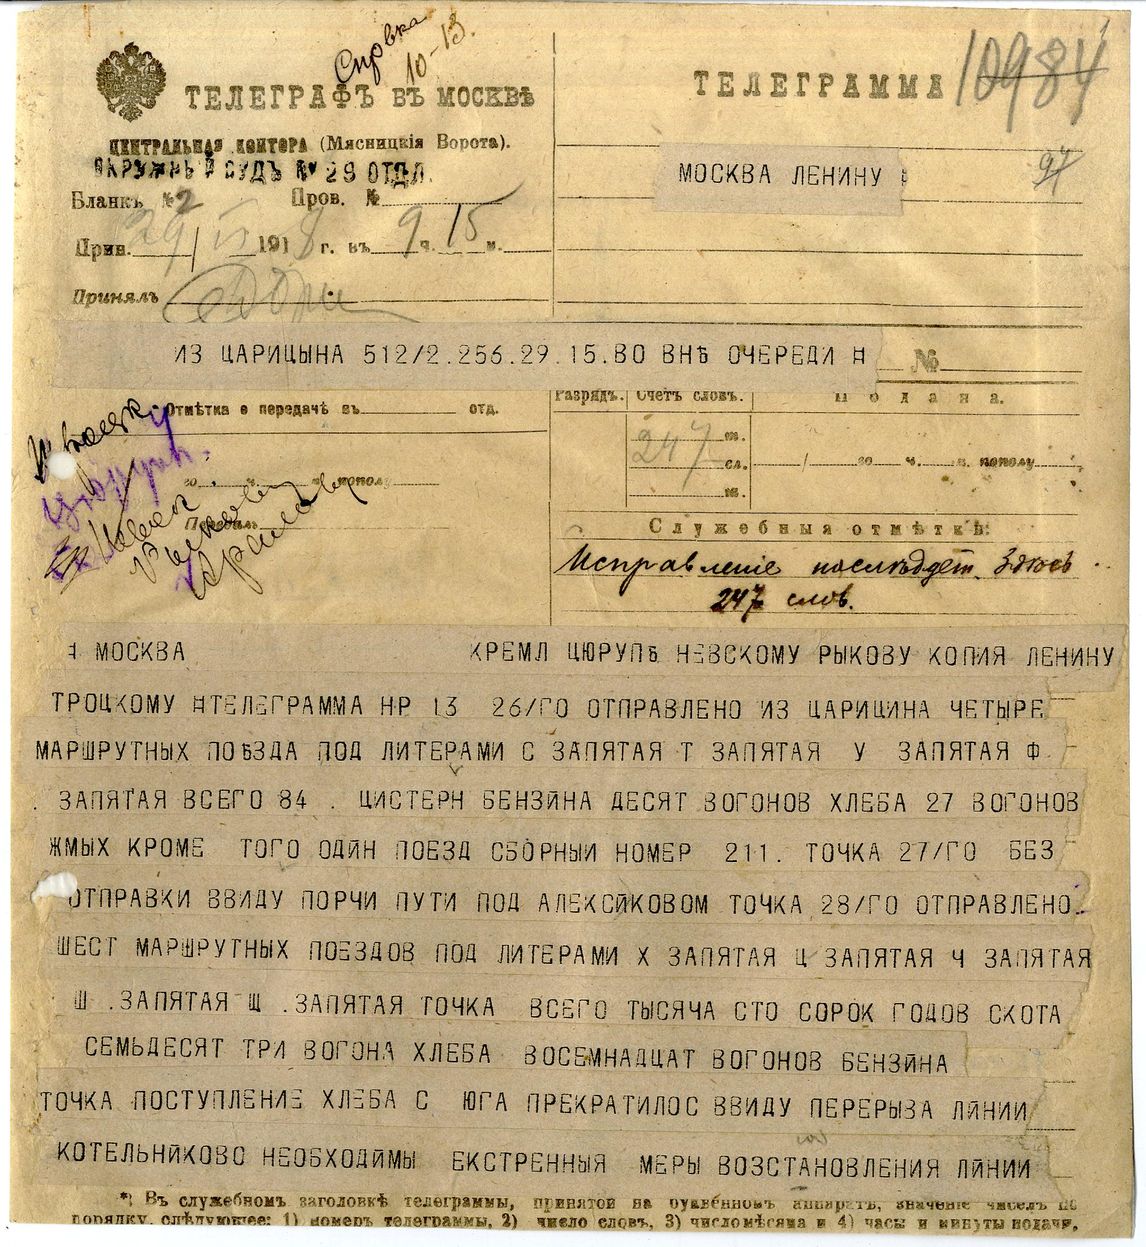 Справка
10-13.
ТЕЛЕГРАФЪ ВЪ МОСКВѢ
ЦЕНТРАЛЬНАЯ КОНТОРА (Мясницкія Ворота).
ОКРУЖНЫЙ СУДЪ № 29 ОТДЛ.
Бланкъ № 2 Пров. №
Прин. 29/VI 1918 г. въ 9 ч. 15 м.
Принялъ
ТЕЛЕГРАММА 10984
97
МОСКВА ЛЕНИНУ
ИЗ ЦАРИЦЫНА 512/2.256.29.15.80 ВНѢ ОЧЕРЕДИ Н
№
Отмѣтка о передачѣ въ отд.
го ч. пополу
Передалъ
Разрядъ. Счетъ словъ. Подана.
247 сл.
го ч. м. пополу
Служебныя отмѣтки:
Исправленіе послѣдует. Здесь
247 слов.
Н МОСКВА КРЕМЛ ЦЮРУПѢ НЕВСКОМУ РЫКОВУ КОПИЯ ЛЕНИНУ
ТРОЦКОМУ НТЕЛЕГРАММА НР 13 26/ГО ОТПРАВЛЕНО ИЗ ЦАРИЦИНА ЧЕТЫРЕ
МАРШРУТНЫХ ПОѢЗДА ПОД ЛИТЕРАМИ С ЗАПЯТАЯ Т ЗАПЯТАЯ У ЗАПЯТАЯ Ф
. ЗАПЯТАЯ ВСЕГО 84 . ЦИСТЕРН БЕНЗЙНА ДЕСЯТ ВОГОНОВ ХЛЕБА 27 ВОГОНОВ
ЖМЫХ КРОМЕ ТОГО ОДЙН ПОЕЗД СБОРНЫЙ НОМЕР 211. ТОЧКА 27/ГО БЕЗ
ОТПРАВКИ ВВИДУ ПОРЧИ ПУТИ ПОД АЛЕКСЙКОВОМ ТОЧКА 28/ГО ОТПРАВЛЕНО..
ШЕСТ МАРШРУТНЫХ ПОЕЗДОВ ПОД ЛИТЕРАМИ Х ЗАПЯТАЯ Ц ЗАПЯТАЯ Ч ЗАПЯТАЯ
Ш .ЗАПЯТАЯ Щ .ЗАПЯТАЯ ТОЧКА ВСЕГО ТЫСЯЧА СТО СОРОК ГОДОВ СКОТА
СЕМЬДЕСЯТ ТРИ ВОГОНА ХЛЕБА ВОСЕМНАДЦАТ ВОГОНОВ БЕНЗЙНА
ТОЧКА ПОСТУПЛЕНИЕ ХЛЕБА С ЮГА ПРЕКРАТИЛОС ВВИДУ ПЕРЕРЫВА ЛЙНИИ
КОТЕЛЬНЙКОВО НЕОБХОДЙМЫ ЕКСТРЕННЫЯ МЕРЫ ВОЗСТАНОВЛЕНИЯ ЛЙНИИ
*) Въ служебномъ заголовкѣ телеграммы, принятой на буквенномъ аппаратѣ, значеніе чиселъ по
порядку, слѣдующее: 1) номеръ телеграммы, 2) число словъ, 3) число мѣсяца и 4) часы и минуты подачи.